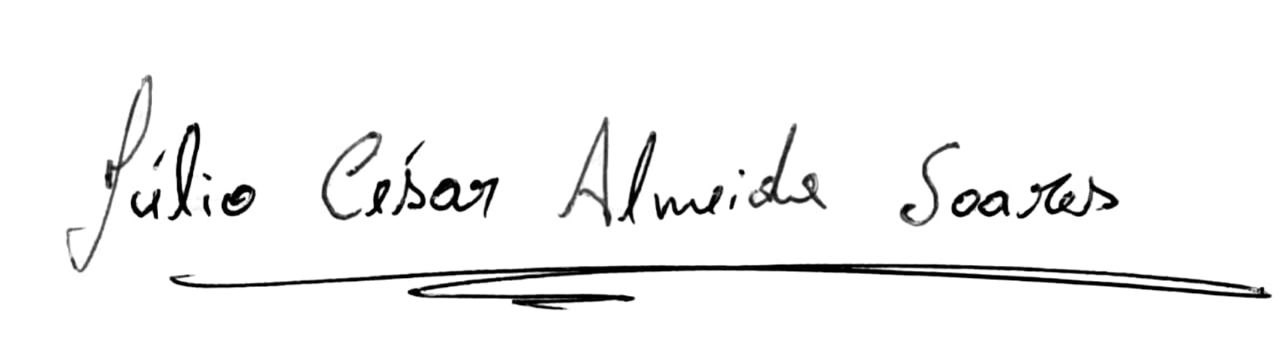 Júlio César Almeida Soares